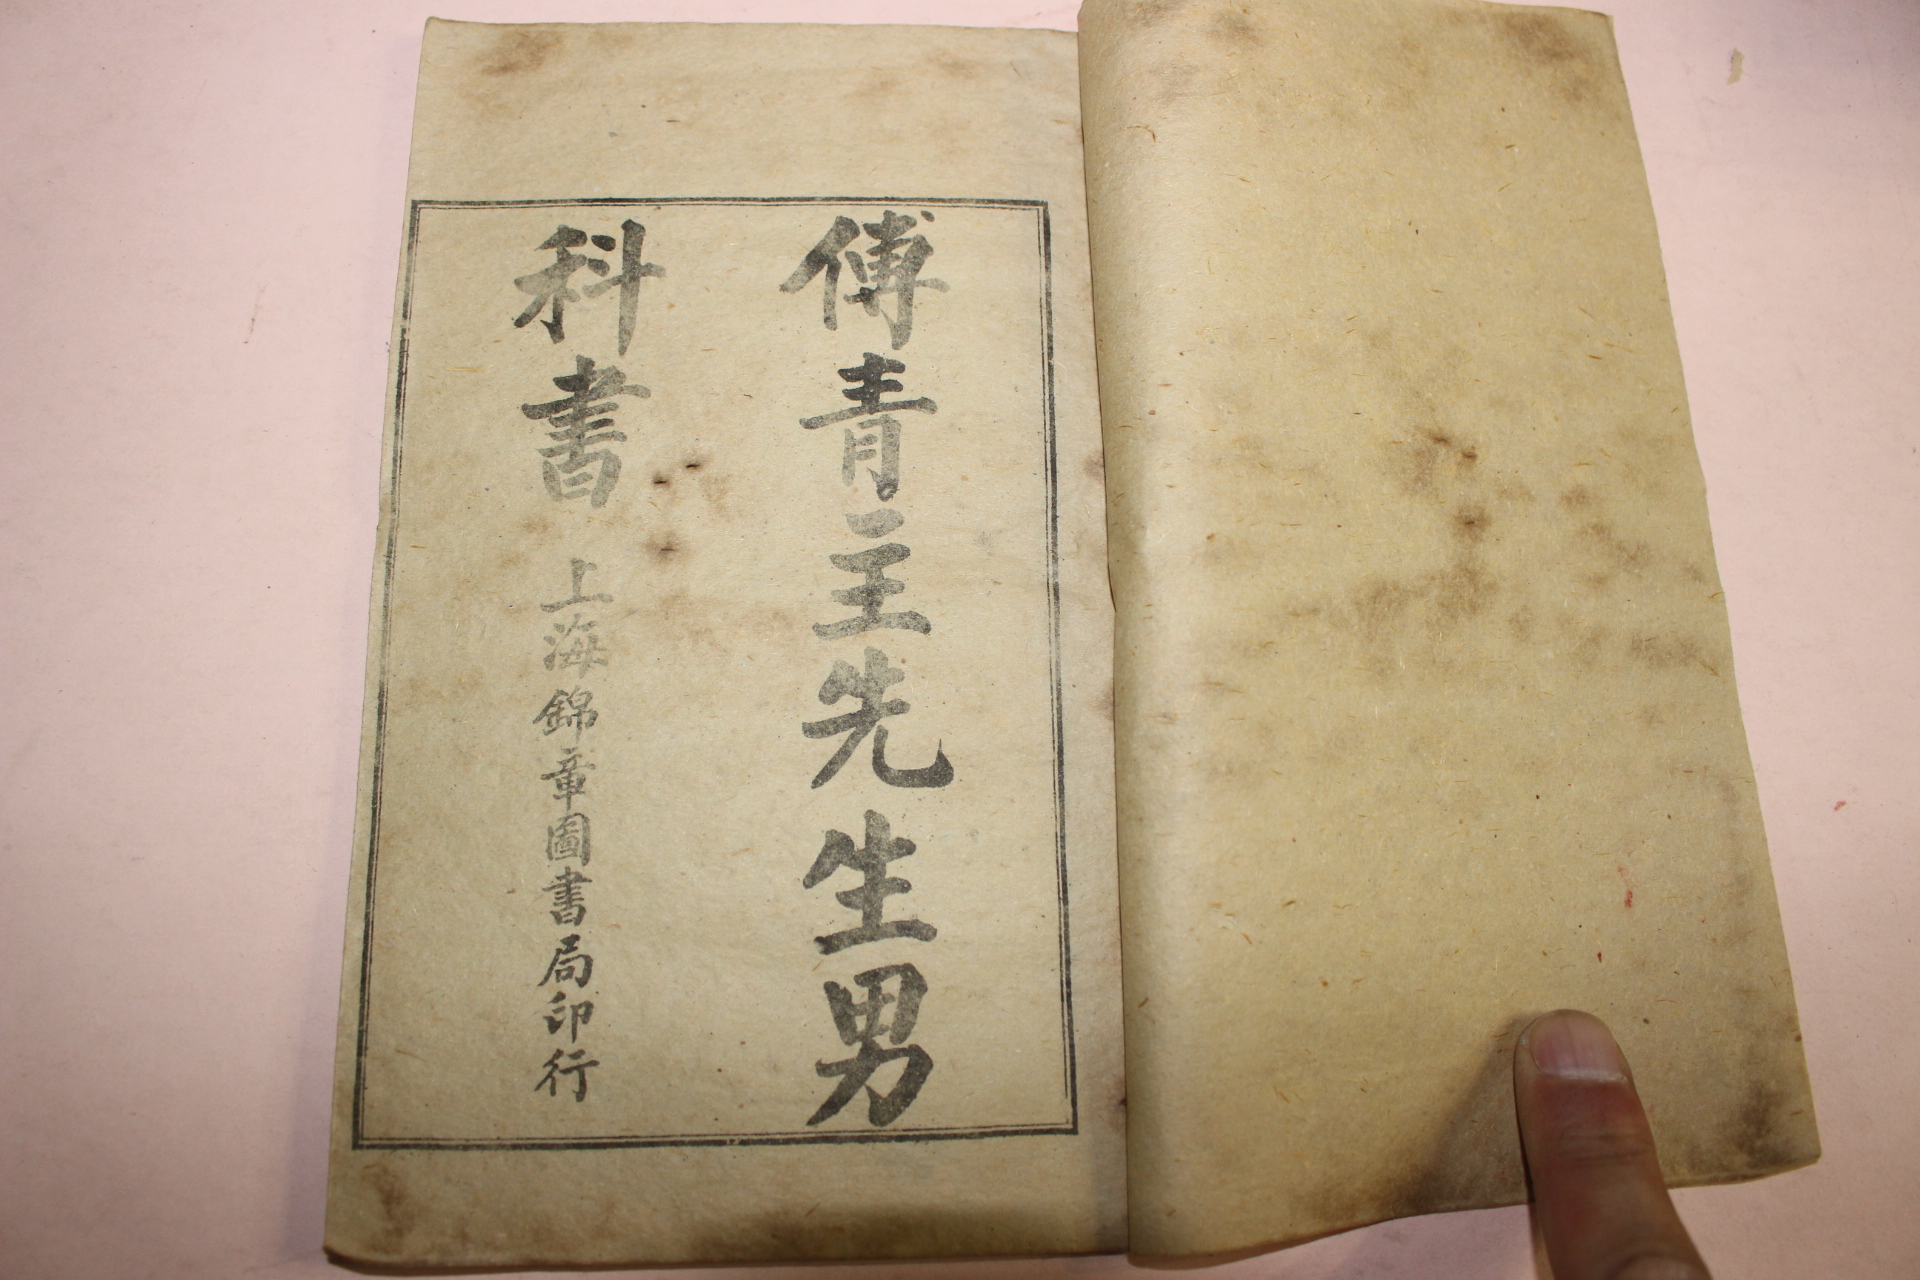 傅青主先生男
科書 上海錦章圖書局印行